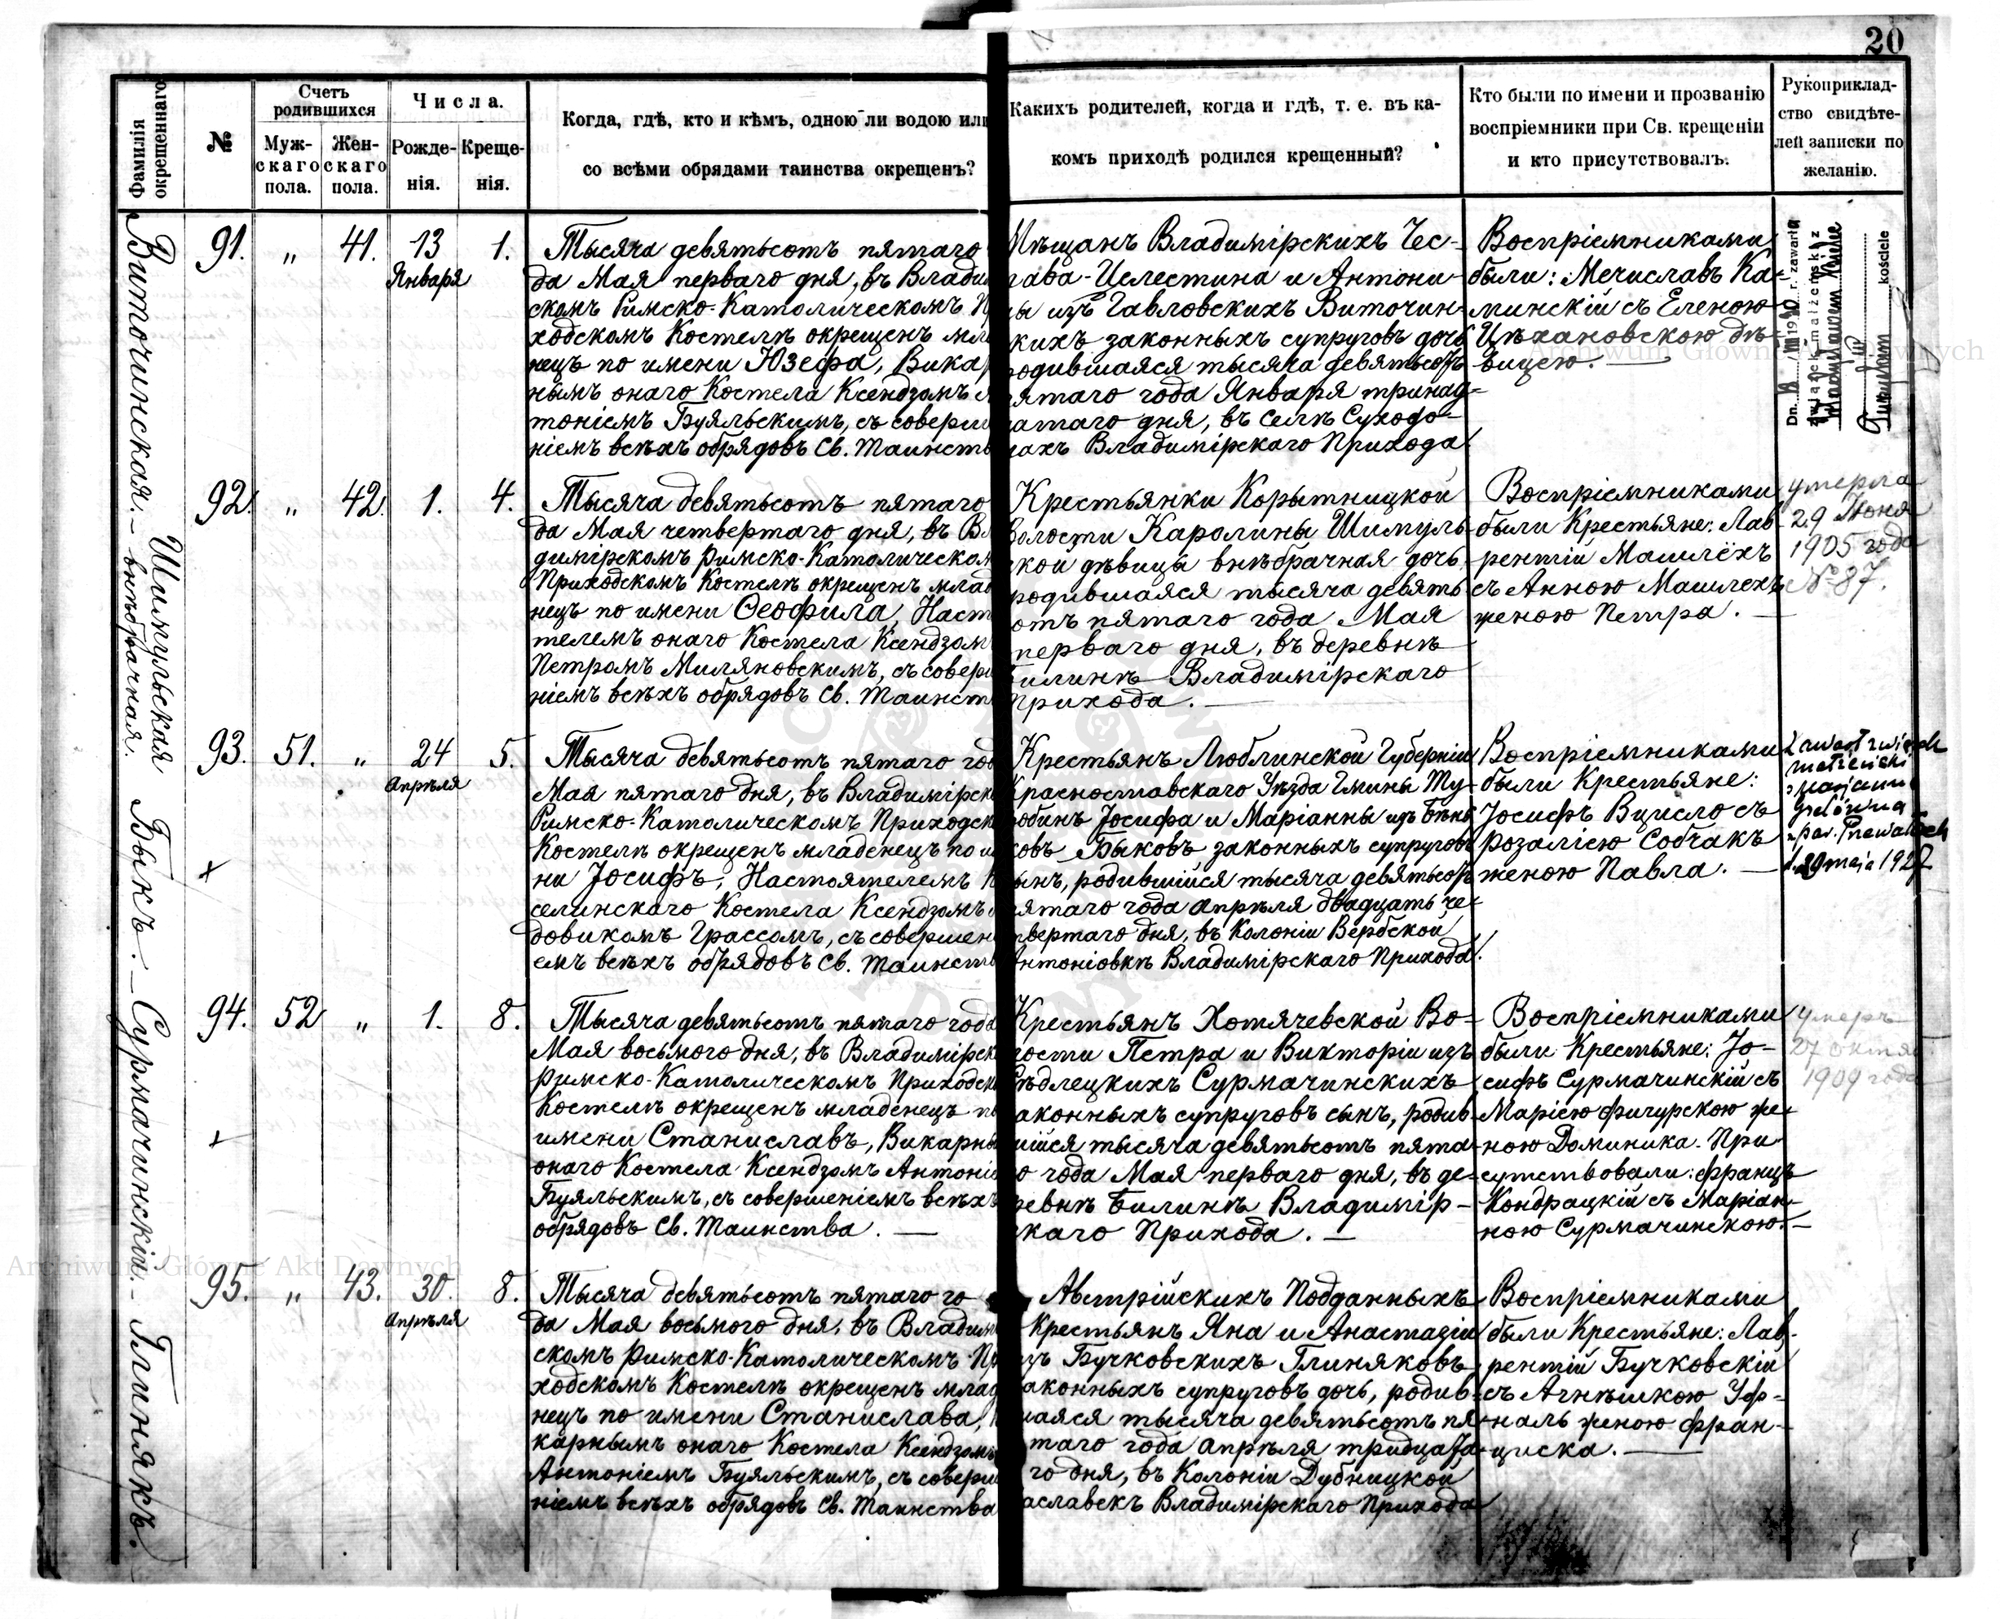 20
Фамилія окрещеннаго
№
Счетъ родившихся
Муж-
скаго
пола.
Жен-
скаго
пола.
Числа.
Рожде-
нія.
Креще-
нія.
Когда, гдѣ, кто и кѣмъ, одною ли водою или
со всѣми обрядами таинства окрещенъ?
Какихъ родителей, когда и гдѣ, т. е. въ ка-
комъ приходѣ родился крещенный?
Кто были по имени и прозванію
воспріемники при Св. крещеніи
и кто присутствовалъ.
Рукоприклад-
ство свидѣте-
лей записки по
желанію.
Виточинская.
91. " 41. 13 Января 1.
Тысяча девятьсотъ пятаго
да Мая перваго дня, въ Влади
скомъ Римско-Католическомъ П
ходскомъ Костелѣ окрещенъ мла
нецъ по имени Юзефа, Викар
нымъ онаго Костела Ксендзомъ
тоніемъ Буяльскимъ, съ соверш
ніемъ всѣхъ обрядовъ Св. Таинств
Мѣщанъ Владимірскихъ Чес-
лава-Целестина и Антони-
ны изъ Гавловскихъ Виточин-
скихъ законныхъ супруговъ дочь
родившаяся тысяча девятьсотъ
пятаго года Января тринад-
цатаго дня, въ селѣ Суходо-
лахъ Владимірскаго Прихода
Воспріемниками
были: Мечиславъ Ка-
минскій съ Еленою
Цѣхановскою дѣ-
вицею.
Dn. r. zawarła
związek małżeński z
kościele
Шимульская - внѣбрачная.
92. " 42. 1. 4.
Тысяча девятьсотъ пятаго
да Мая четвертаго дня, въ Вла
димірскомъ Римско-Католическом
Приходскомъ Костелѣ окрещенъ млад
нецъ по имени Ѳеофила, Наст
телемъ онаго Костела Ксендзом
Петромъ Миляновскимъ, съ совер
ніемъ всѣхъ обрядовъ Св. Таинст
Крестьянки Корытницкой
Волости Каролины Шимуль-
ской дѣвицы внѣбрачная дочь
родившаяся тысяча девять
сотъ пятаго года Мая
перваго дня, въ деревнѣ
Билинѣ Владимірскаго
Прихода.
Воспріемниками
были Крестьяне: Лав-
рентій Машлёхъ
съ Анною Машлехъ
женою Петра.
умерла
29 Июня
1905 года
№ 87.
Быкъ.
93. 51. " 24 Апрѣля 5.
Тысяча девятьсотъ пятаго год
Мая пятаго дня, въ Владимірск
Римско-Католическомъ Приходск
Костелѣ окрещенъ младенецъ по и
ни Іосифъ, Настоятелемъ К
селинскаго Костела Ксендзомъ
довикомъ Грассомъ, съ совершен
емъ всѣхъ обрядовъ Св. Таинств
Крестьянъ Люблинской Губерніи
Красноставскаго Уѣзда Гмины Ту-
робинъ Іосифа и Маріанны изъ Бѣня
ковъ Быковъ законныхъ супруговъ
сынъ, родившійся тысяча девятьсотъ
пятаго года Апрѣля двадцать че-
твертаго дня, въ Колоніи Вербской
Антоніовкѣ Владимірскаго Прихода.
Воспріемниками
были Крестьяне:
Іосифъ Вцисло съ
Розаліею Собчакъ
женою Павла.
Zawarł związek
małżeński
29 maja 1927
Сурмачинскій.
94. 52 " 1. 8.
Тысяча девятьсотъ пятаго года
Мая восьмого дня, въ Владимірск
Римско-Католическомъ Приходск
Костелѣ окрещенъ младенецъ по
имени Станиславъ, Викарны
онаго Костела Ксендзомъ Антоніе
Буяльскимъ, съ совершеніемъ всѣхъ
обрядовъ Св. Таинства.
Крестьянъ Хотячевской Во-
лости Петра и Викторіи изъ
Сѣдлецкихъ Сурмачинскихъ
законныхъ супруговъ сынъ, родив-
шійся тысяча девятьсотъ пята-
го года Мая перваго дня, въ де-
ревнѣ Билинѣ Владимір-
скаго Прихода.
Воспріемниками
были Крестьяне: Іо-
сифъ Сурмачинскій съ
Маріею Фигурскою же-
ною Доминика. При
сутствовали: Францъ
Кондрацкій съ Маріан-
ною Сурмачинскою.
умеръ
27 октяб
1909 года
Глинякъ.
95. " 43. 30. Апрѣля 8.
Тысяча девятьсотъ пятаго го
да Мая восьмого дня, въ Владим
скомъ Римско-Католическомъ Пр
ходскомъ Костелѣ окрещенъ млад
нецъ по имени Станислава,
карнымъ онаго Костела Ксендзомъ
Антоніемъ Буяльскимъ, съ соверш
ніемъ всѣхъ обрядовъ Св. Таинства
Австрійскихъ Подданныхъ
Крестьянъ Яна и Анастазіи
изъ Бучковскихъ Глиняковъ
законныхъ супруговъ дочь, родив-
шаяся тысяча девятьсотъ пя-
таго года Апрѣля тридцата
го дня, въ Колоніи Дубницкой
аславекъ Владимірскаго Прихода
Воспріемниками
были Крестьяне: Лав-
рентій Бучковскій
съ Агнѣшкою Уф-
наль женою Фран-
циска.
Archiwum Główne Akt Dawnych